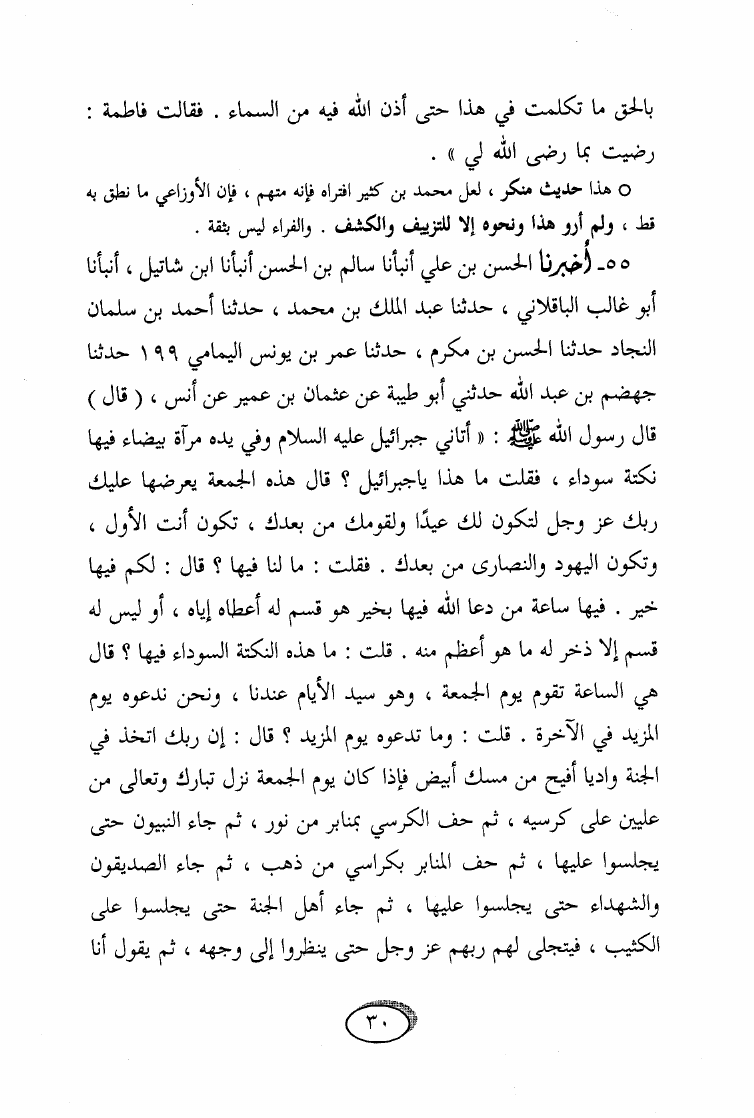 بالحق ما تكلمت في هذا حتى أذن الله فيه من السماء . فقالت فاطمة :
رضيت بما رضى الله لي » .
○ هذا حديث منكر ، لعل محمد بن كثير افتراه فإنه متهم ، فإن الأوزاعي ما نطق به
قط ، ولم أرو هذا ونحوه إلا للتزييف والكشف . والفراء ليس بثقة .
٥٥ـ أخبرنا الحسن بن علي أنبأنا سالم بن الحسن أنبأنا ابن شاتيل ، أنبأنا
أبو غالب الباقلاني ، حدثنا عبد الملك بن محمد ، حدثنا أحمد بن سلمان
النجاد حدثنا الحسن بن مكرم ، حدثنا عمر بن يونس اليمامي ١٩٩ حدثنا
جهضم بن عبد الله حدثني أبو طيبة عن عثمان بن عمير عن أنس ، ( قال )
قال رسول الله ﷺ : « أتاني جبرائيل عليه السلام وفي يده مرآة بيضاء فيها
نكتة سوداء ، فقلت ما هذا ياجبرائيل ؟ قال هذه الجمعة يعرضها عليك
ربك عز وجل لتكون لك عيدًا ولقومك من بعدك ، تكون أنت الأول ،
وتكون اليهود والنصارى من بعدك . فقلت : ما لنا فيها ؟ قال : لكم فيها
خير . فيها ساعة من دعا الله فيها بخير هو قسم له أعطاه إياه ، أو ليس له
قسم إلا ذخر له ما هو أعظم منه . قلت : ما هذه النكتة السوداء فيها ؟ قال
هي الساعة تقوم يوم الجمعة ، وهو سيد الأيام عندنا ، ونحن ندعوه يوم
المزيد في الآخرة . قلت : وما تدعوه يوم المزيد ؟ قال : إن ربك اتخذ في
الجنة واديا أفيح من مسك أبيض فإذا كان يوم الجمعة نزل تبارك وتعالى من
عليين على كرسيه ، ثم حف الكرسي بمنابر من نور ، ثم جاء النبيون حتى
يجلسوا عليها ، ثم حف المنابر بكراسي من ذهب ، ثم جاء الصديقون
والشهداء حتى يجلسوا عليها ، ثم جاء أهل الجنة حتى يجلسوا على
الكثيب ، فيتجلى لهم ربهم عز وجل حتى ينظروا إلى وجهه ، ثم يقول أنا
٣٠